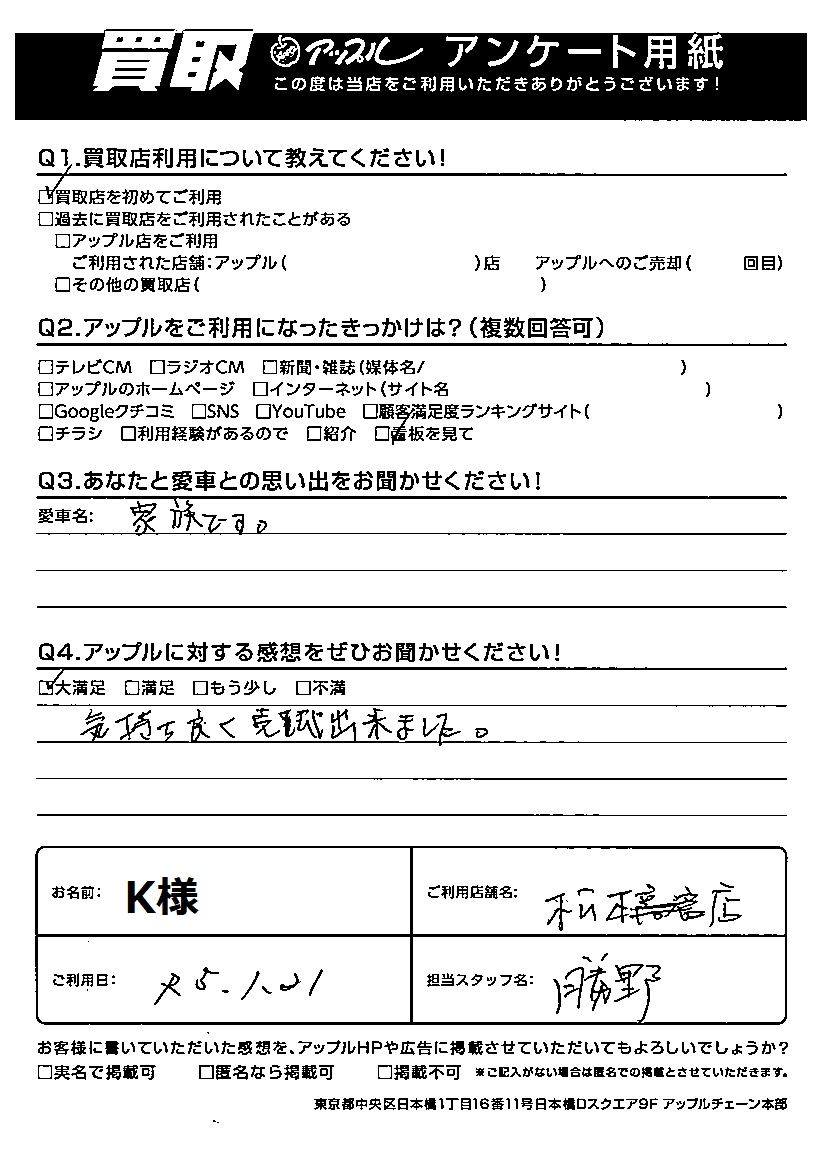 買取 アップル アンケート用紙
この度は当店をご利用いただきありがとうございます!
Q1.買取店利用について教えてください!
☑買取店を初めてご利用
□過去に買取店をご利用されたことがある
□アップル店をご利用
ご利用された店舗:アップル( )店 アップルへのご売却( 回目)
□その他の買取店( )
Q2.アップルをご利用になったきっかけは?(複数回答可)
□テレビCM □ラジオCM □新聞・雑誌(媒体名/ )
□アップルのホームページ □インターネット(サイト名 )
□Googleクチコミ □SNS □YouTube □顧客満足度ランキングサイト( )
□チラシ □利用経験があるので □紹介 ☑看板を見て
Q3.あなたと愛車との思い出をお聞かせください!
愛車名: 家族です。
Q4.アップルに対する感想をぜひお聞かせください!
☑大満足 □満足 □もう少し □不満
気持ち良く売却出来ました。
お名前: K様
ご利用店舗名: 松本店
ご利用日: R5.1.21
担当スタッフ名: 勝野
お客様に書いていただいた感想を、アップルHPや広告に掲載させていただいてもよろしいでしょうか?
□実名で掲載可 □匿名なら掲載可 □掲載不可 ※ご記入がない場合は匿名での掲載とさせていただきます。
東京都中央区日本橋1丁目16番11号日本橋Dスクエア9F アップルチェーン本部